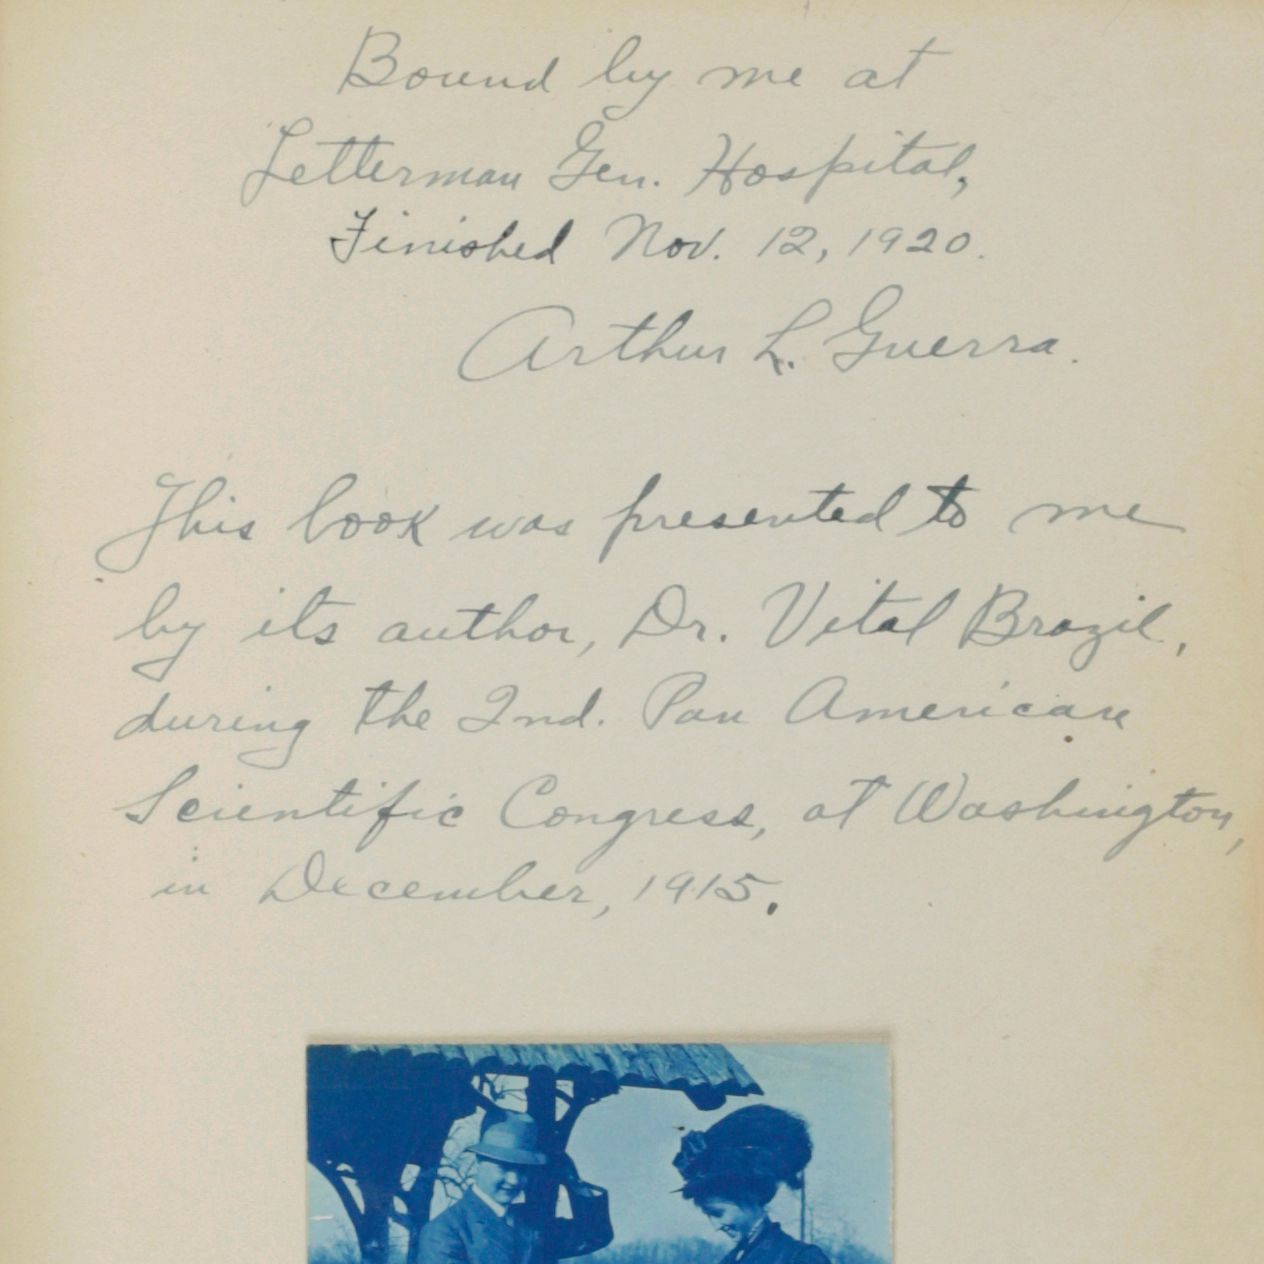 Bound by me at
Letterman Gen. Hospital,
Finished Nov. 12, 1920.
Arthur L. Guerra.
This book was presented to me
by its author, Dr. Vital Brazil,
during the 2nd. Pan American
Scientific Congress, at Washington,
in December, 1915.